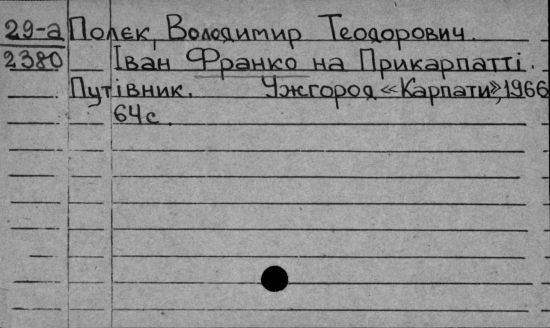 29-а Полєк, Володимир Теодорович.
2380 Іван Франко на Прикарпатті.
Путівник. Ужгород «Карпати», 1966
64с.